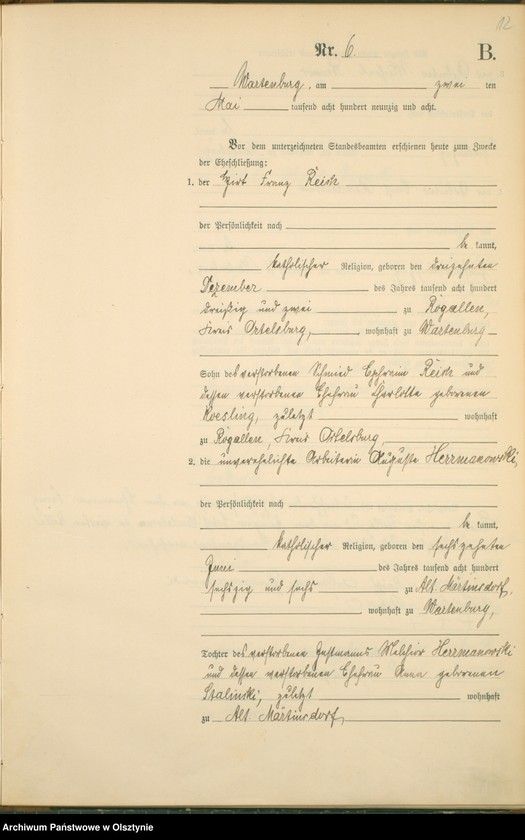 12
Nr. 6
B.
Wartenburg, am zwei ten
Mai tausend acht hundert neunzig und acht.
Vor dem unterzeichneten Standesbeamten erschienen heute zum Zwecke
der Eheschließung:
1. der Hirt Franz Reich
der Persönlichkeit nach
be kannt,
katholischer Religion, geboren den dreizehnten
Dezember des Jahres tausend acht hundert
dreißig und zwei zu Rogallen,
Kreis Ortelsburg, wohnhaft zu Wartenburg
Sohn des verstorbenen Schmied Ephraim Reich und
dessen verstorbenen Ehefrau Charlotte geborenen
Koesling, zuletzt wohnhaft
zu Rogallen, Kreis Ortelsburg,
2. die unverehelichte Arbeiterin Auguste Herrmanowski,
der Persönlichkeit nach
be kannt,
katholischer Religion, geboren den sechszehnten
Juni des Jahres tausend acht hundert
sechszig und sechs zu Alt. Martinsdorf,
wohnhaft zu Wartenburg,
Tochter des verstorbenen Instmanns Melchior Herrmanowski
und dessen verstorbenen Ehefrau Anna geborenen
Stalinski, zuletzt wohnhaft
zu Alt. Martinsdorf,
Archiwum Państwowe w Olsztynie